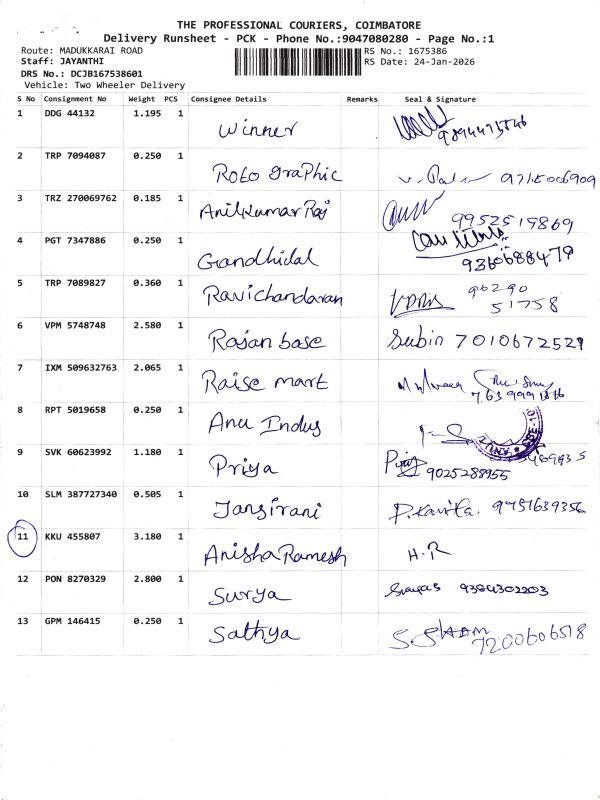 THE PROFESSIONAL COURIERS, COIMBATORE
Delivery Runsheet - PCK - Phone No.:9047080280 - Page No.:1
Route: MADUKKARAI ROAD RS No.: 1675386
Staff: JAYANTHI RS Date: 24-Jan-2026
DRS No.: DCJB167538601
Vehicle: Two Wheeler Delivery
S No Consignment No Weight PCS Consignee Details Remarks Seal & Signature
1 DDG 44132 1.195 1 Winner
2 TRP 7094087 0.250 1 Roto graphic 9715006909
3 TRZ 270069762 0.185 1 Anilkumar Raj 9952519869
4 PGT 7347886 0.250 1 Gandhidal 9360688479
5 TRP 7089827 0.360 1 Ravichandaran 96290 51758
6 VPM 5748748 2.580 1 Rajan base Subin 7010672529
7 IXM 509632763 2.065 1 Raise mart
8 RPT 5019658 0.250 1 Anu Indus
9 SVK 60623992 1.180 1 Priya 9025288955
10 SLM 387727340 0.505 1 Jansirani P. Kavitha. 9751639356
11 KKU 455807 3.180 1 Anisha Ramesh H.R
12 PON 8270329 2.800 1 Surya 9384302203
13 GPM 146415 0.250 1 Sathya 7200606518